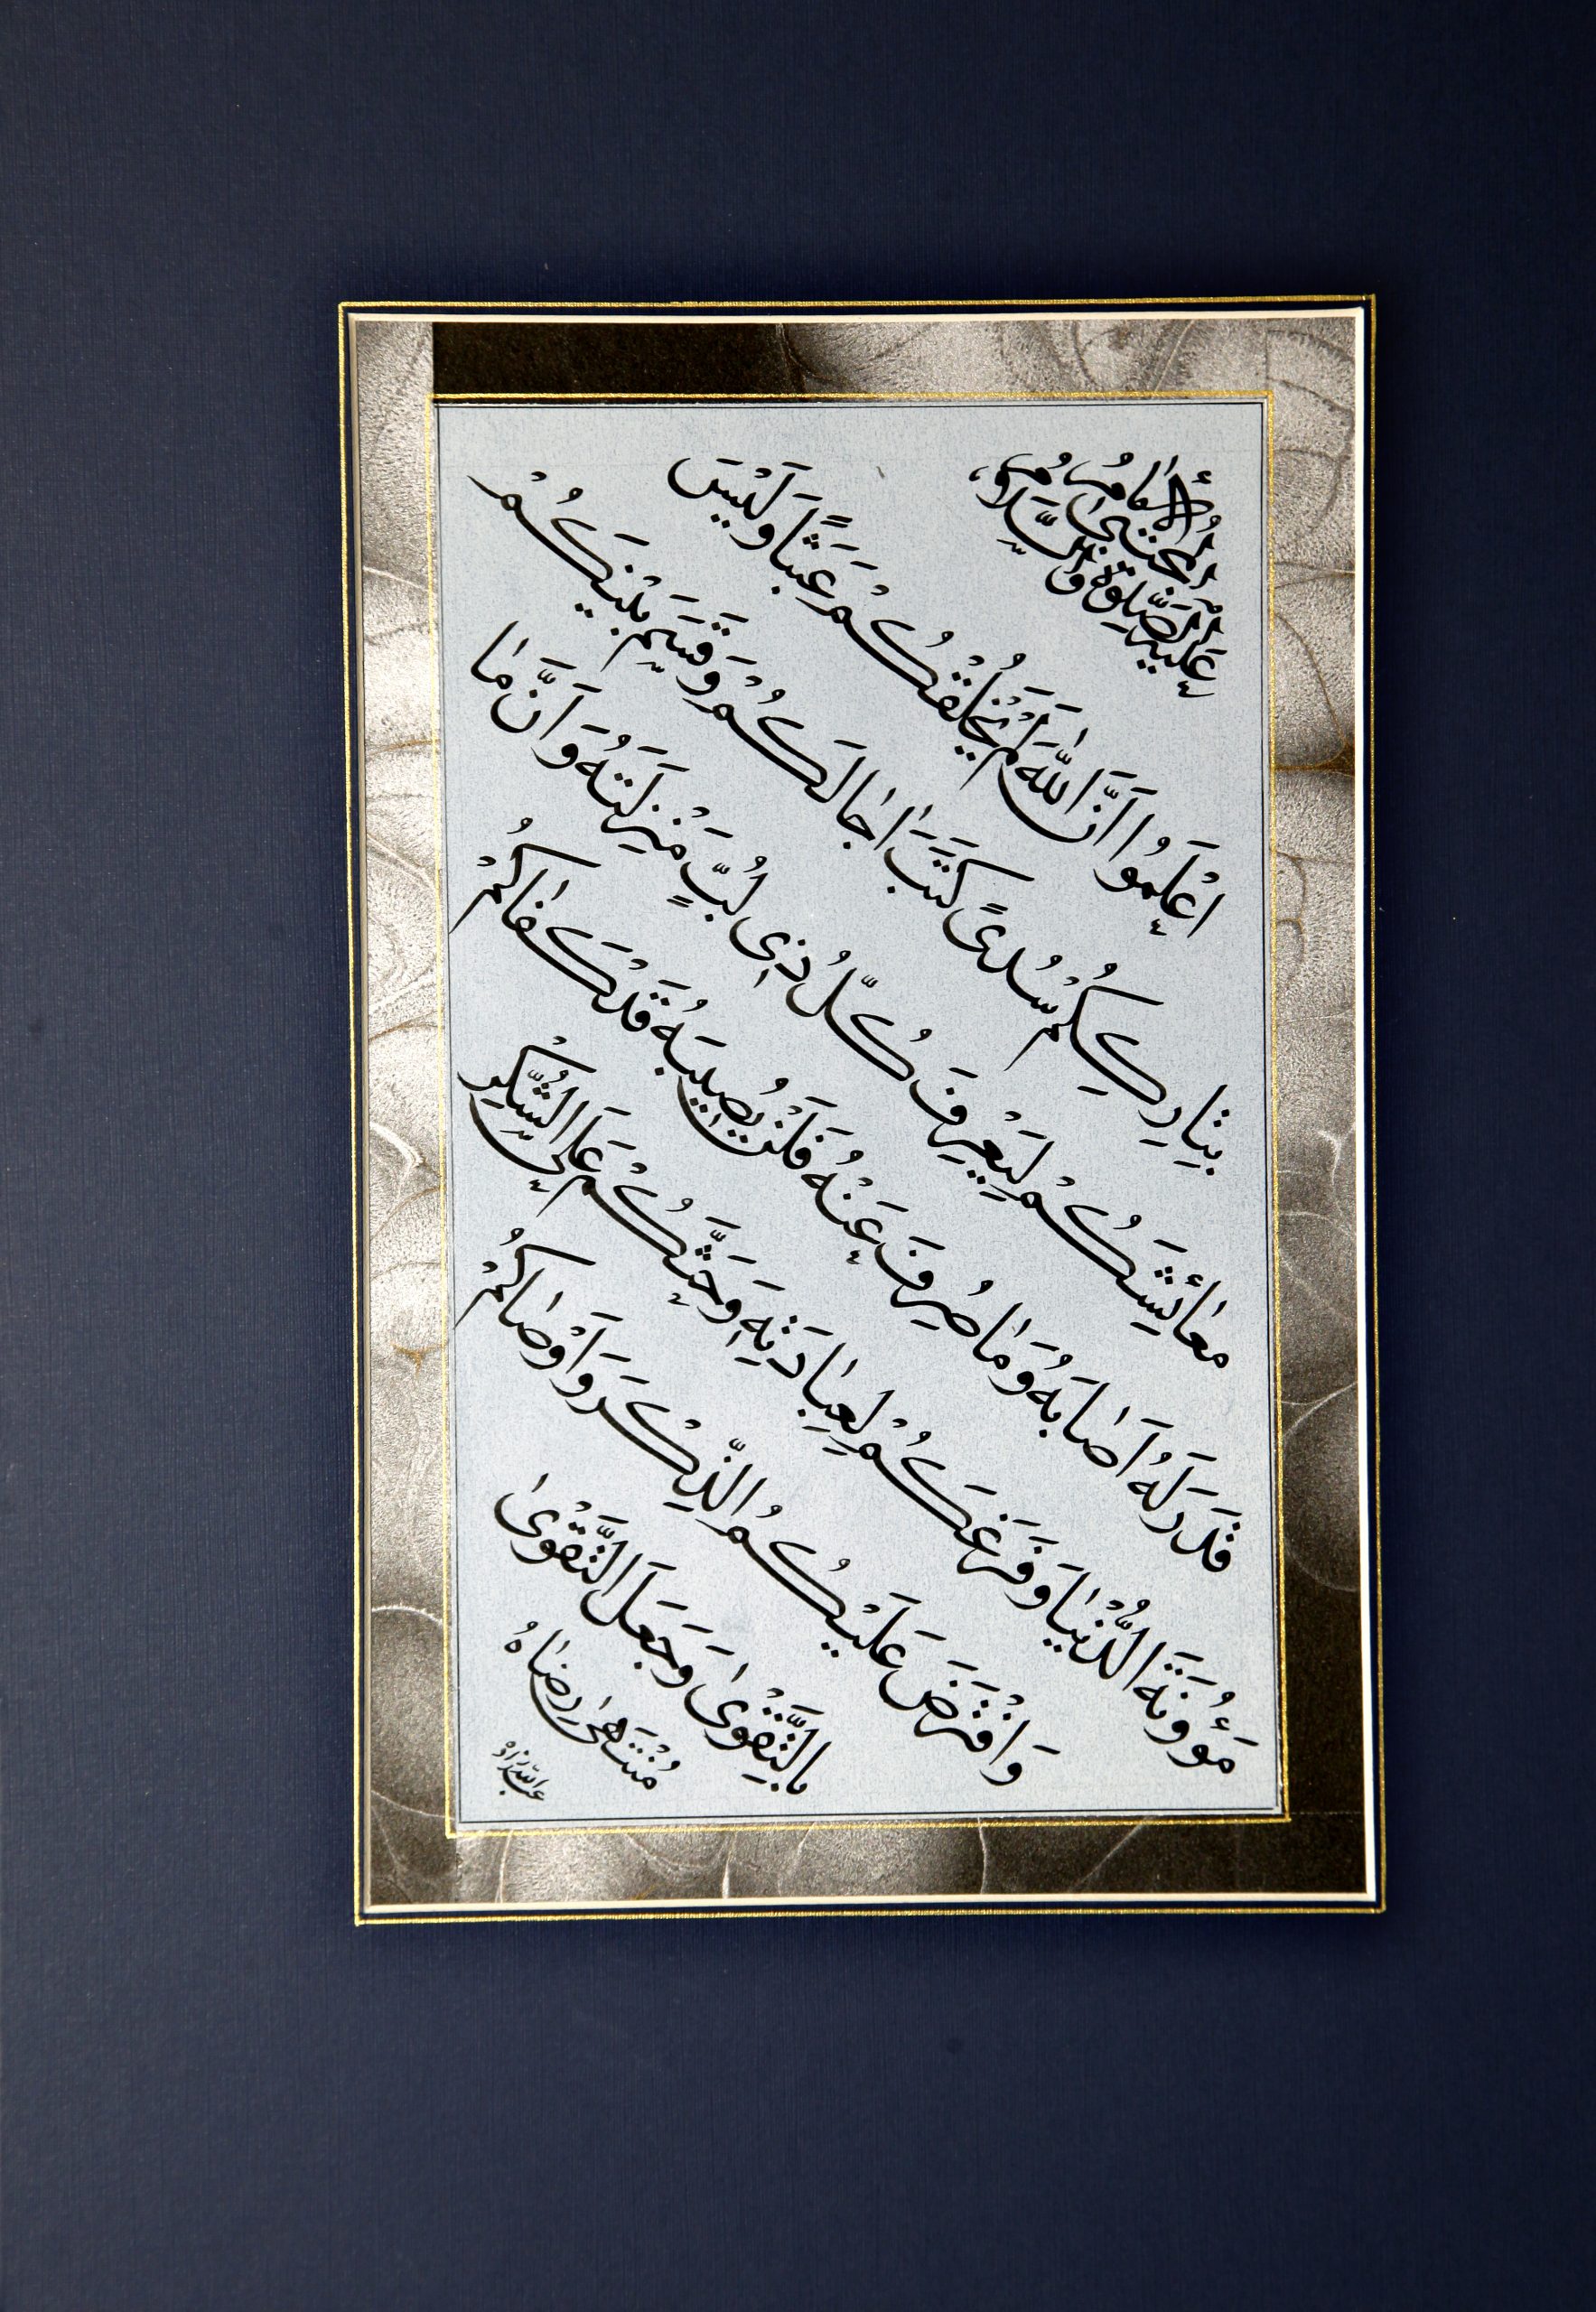 الأمام
المجتبى
عليه الصلوة والسلام
اعْلَمُوا اَنَّ اللّٰهَ لَمْ يَخْلُقْكُمْ عَبَثًا وَلَيْسَ
بِتَارِكِكُمْ سُدىً كَتَبَ اٰجالَكُمْ وَقَسَمَ بَيْنَكُمْ
مَعٰائِشَكُمْ لِيَعْرِفَ كُلُّ ذِى لُبٍّ مَنْزِلَتَهُ وَاَنَّ مٰا
قَدَرَ لَهُ اَصٰابَهُ وَمٰا صُرِفَ عَنْهُ فَلَنْ يُصِيبَهُ قَدْ كَفٰاكُمْ
مَؤُونَةَ الدُّنْيٰا وَفَرَغَكُمْ لِعِبٰادَتِهِ وَحَثَّكُمْ عَلَى الشُّكْرِ
وَافْتَرَضَ عَلَيْكُمُ الذِّكْرَ وَاَوْصٰاكُمْ
بِالتَّقْوىٰ وَجَعَلَ التَّقْوىٰ
مُنْتَهىٰ رِضٰاهُ